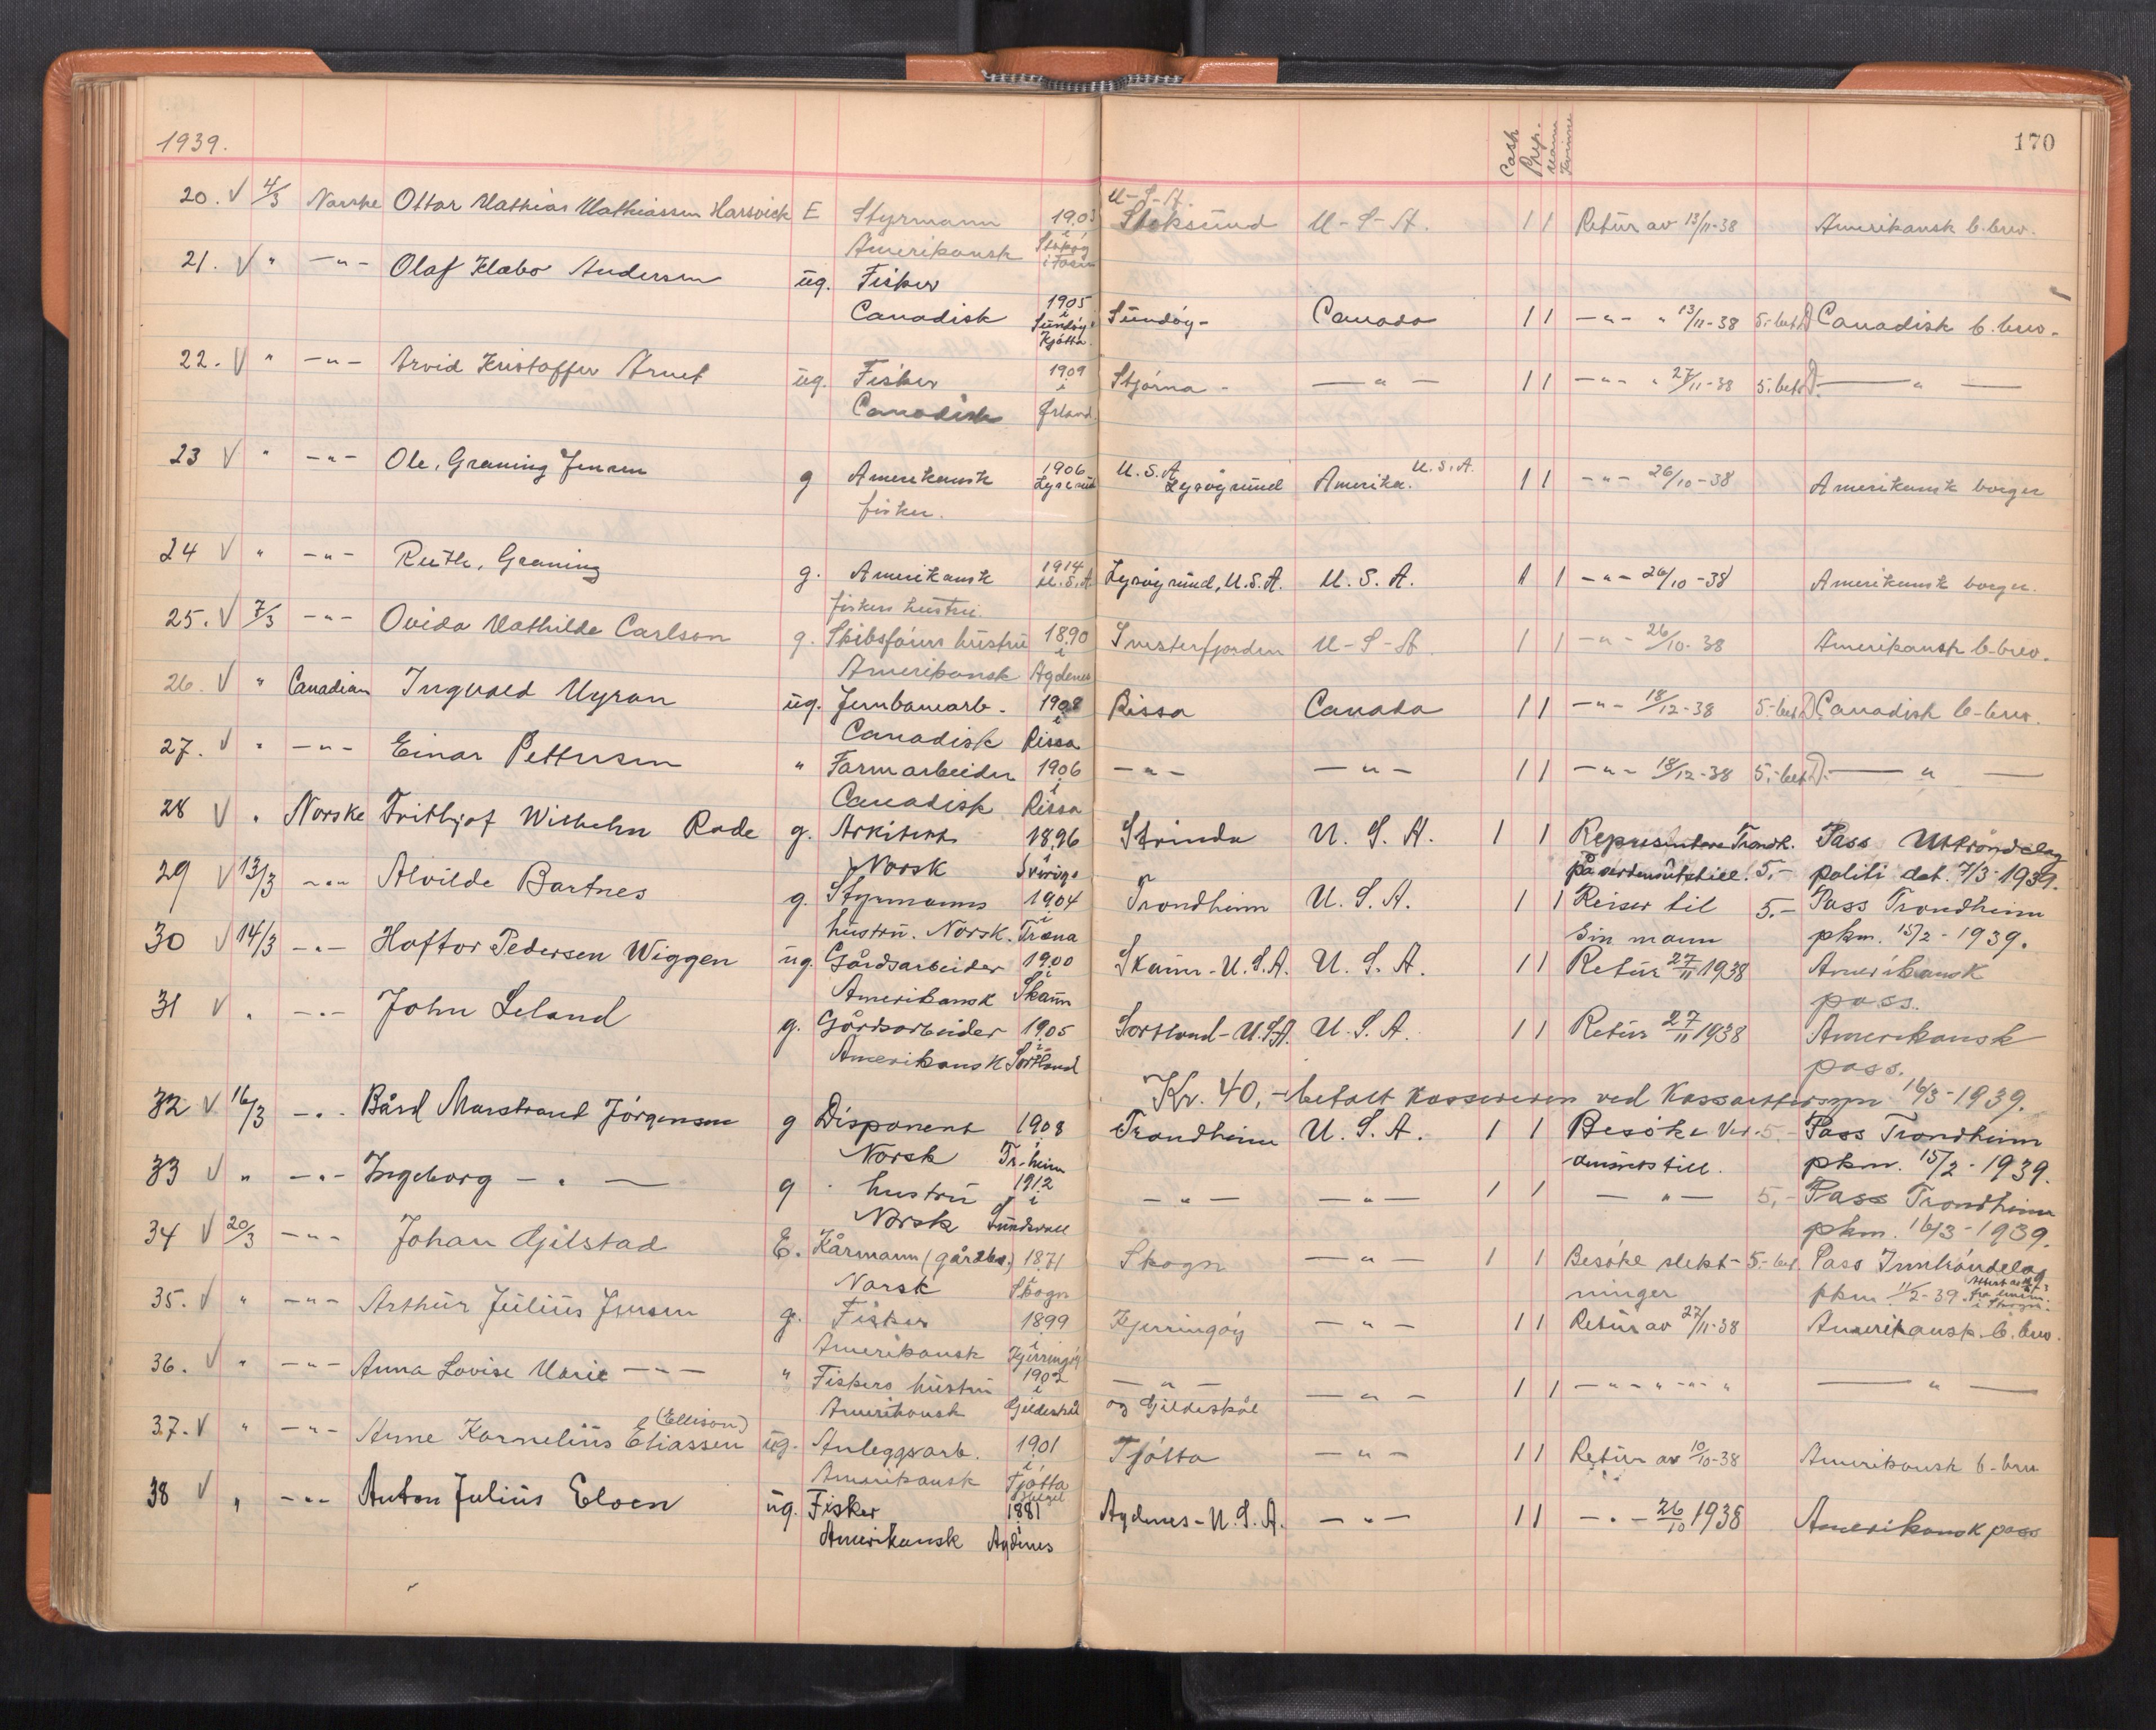 1939.
Cash
Prep.
Mann
Kvinne
170
20. V 4/3 Norske Ottar Mathias Mathiassen Harsvick E Styrmann 1903 U-S-A. Stoksund U-S-A. 1 1 Retur av 13/11-38 Amerikansk b.brev.
Amerikansk i Stokøy i Fosen
21. V " -"- Olaf Klæbo Andersen ug. Fisker
Canadisk 1905 i Sundøy Kjøtta Sundøy- Canada 1 1 -"- " 13/11-38 5.-bet. Canadisk b.brev.
22. V " -"- Arvid Kristoffer Arnet ug. Fisker 1909 Stjørna - -"- 1 1 -"- " 27/11-38 5.bet. -"-
Canadisk i Ørland
23 V " -"- Ole, Graning Jensen g Amerikansk 1906 Lysøsund U.S.A Lysøysund Amerika. U.S.A. 1 1 -"- 26/10-38 Amerikansk borger
fisker.
24 V " -"- Ruth, Graning g. Amerikansk 1914 U.S.A Lysøysund, U.S.A. U.S.A. 1 1 -"- 26/10-38 Amerikansk borger.
fiskers hustru.
25. V 7/3 -"- Ovida Mathilde Carlson g. Skibsførers hustru 1890 Snesterfjorden U-S-A. 1 1 -"- 26/10-38 Amerikansk b-brev.
Amerikansk i Agdenes
26. V " Canadian Ingvald Myran ug. Jernbanearb. 1908 Rissa Canada 1 1 -"- 18/12-38 5-bet. Canadisk b-brev.
Canadisk i Rissa
27. V " -"- Einar Pettersen " Farmarbeider 1906 -"- -"- 1 1 -"- 18/12-38 5.-bet. -"-
Canadisk i Rissa
28 V " Norske Frithjof Wilhelm Rode g. Arkitekt 1896 Strinda U.S.A. 1 1 Representere Trondh. Pass Uttrøndelag
Norsk i Sverige på verdensutstill. 5,- politi det. 7/3-1939.
29 V 13/3 -"- Alvilde Bartnes g. Styrmanns 1904 Trondheim U.S.A. 1 1 Reiser til 5.- Pass Trondheim
hustru. Norsk. i Træna sin mann pkm. 15/2-1939.
30 V 14/3 -"- Haftor Pedersen Wiggen ug. Gårdsarbeider 1900 Skaun-U.S.A. U.S.A. 1 1 Retur 27/11 1938 Amerikansk
Amerikansk i Skaun pass.
31 V " -"- John Leland g. Gårdsarbeider 1905 Sortland-U.S.A. U.S.A. 1 1 Retur 27/11 1938 Amerikansk
Amerikansk i Sortland pass.
Kr. 40,- betalt kassereren ved kassaettersyn 16/3-1939.
32 V 16/3 -"- Bård Marstrand Jørgensen g Disponent 1908 Trondheim U.S.A. 1 1 Besøke Ver- 5.- Pass Trondheim
Norsk i Tr.heim densutstill. pkm. 15/2-1939.
33 V " -"- Ingeborg -"- g hustru 1912 -"- -"- 1 1 -"- 5,- Pass Trondheim
Norsk i Sundsvall pkm. 16/3-1939.
34 V 20/3 -"- Johan Gilstad E. Kårmann (gårdbr.) 1871 Skogn -"- 1 1 Besøke slekt- 5.-bet. Pass Inntrøndelag
Norsk i Skogn ninger pkm. 11/2-39.
35. V " -"- Arthur Julius Jensen g. Fisker 1899 Kjerringøy -"- 1 1 Retur av 27/11-38 Amerikansk b.brev.
Amerikansk i Kjerringøy
36. V " -"- Anna Lovise Marie -"- " Fiskers hustru 1902 -"- -"- 1 1 -"- " -"- " -"-
Amerikansk i Gildeskål og Gildeskål
37. V " -"- Arne Kornelius Eliassen (Ellison) ug. Anleggsarb. 1901 Tjøtta -"- 1 1 Retur av 10/10-38 Amerikansk b-brev
Amerikansk i Tjøtta
38 V " -"- Anton Julius Eloen ug. Fisker 1881 Agdenes-U.S.A. -"- 1 1 -"- 26/10 1938 Amerikansk pass
Amerikansk i Agdenes